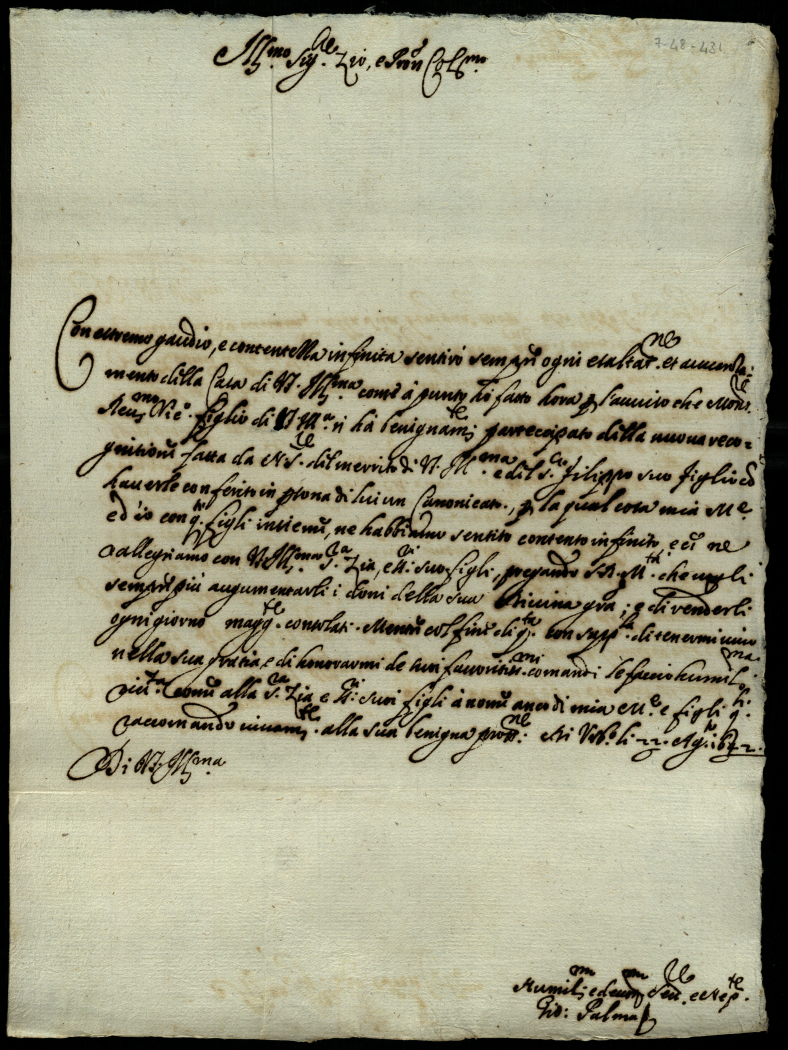 7-48-431
Ill.mo Sig.re Zio, e Pron Col.mo
Con estremo gaudio, e contentezza infinita sentirò sempre ogni esaltat.ne et accresci-
mento della Casa di V.S. Ill.ma come à punto hò fatto hora p l'auuiso che Mons.re
Reu.mo figlio di V.S. Ill.ma ci hà benignam.te partecipato della nuoua reco-
gnitione fatta da N.S.re del merito di V.S. Ill.ma e del S.r Filippo suo figlio co
hauerle conferito in p.sona di lui un Canonicato, p la qual cosa mia M.e
ed io con q.ti figli insieme, ne habbiamo sentito contento infinito, e ce ne
rallegriamo con V.S. Ill.ma S.ra Zia, e ss.ri suoi figli, pregando S.D.M.tà che uogli
sempre più augumentarli i doni della sua Diuina gra; e di renderli
ogni giorno magg.te consolati. Mentre col fine di q.ta con supp.la di tenermi uiuo
nella sua gratia, e di honorarmi de suoi fauoritiss.mi comandi le faccio humil.ma
riu.za come alla S.ra Zia e ss.ri suoi figli à nome anco di mia M.e e figli q.li
raccomando uiuam.te alla sua benigna prott.ne Di li 22 Ag.to 1672.
Di V.S. Ill.ma
Humil.mo e deuot.mo Ser.re e Nep.te
Gio: Palma